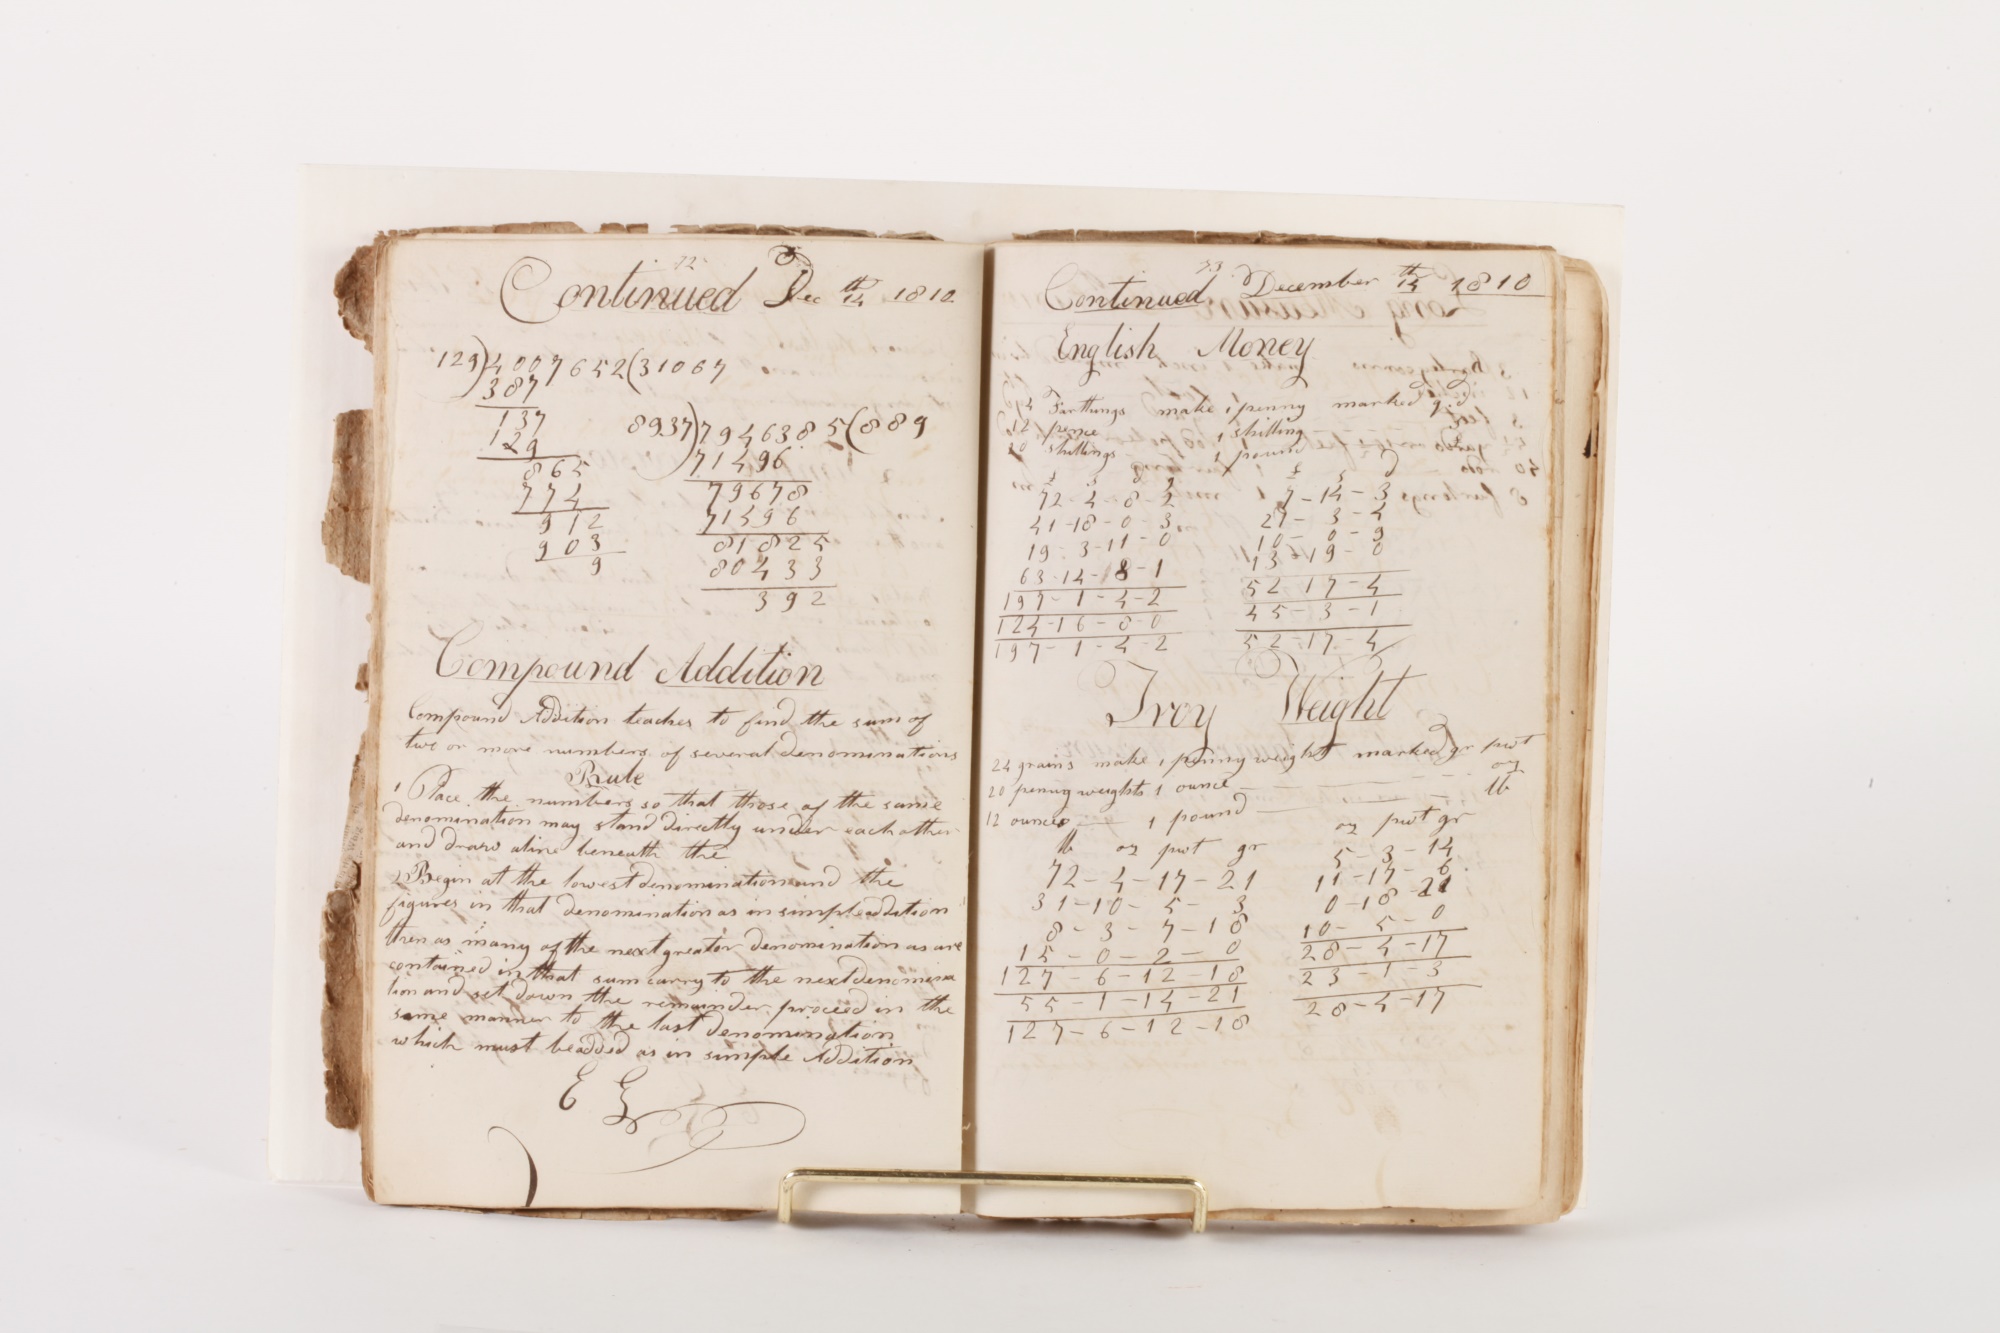 72
Continued Dec 14th 1810
129)4007652(31067
387
137
129
865
774
912
903
9
8937)7946385(889
71496
79678
71496
81825
80433
392
Compound Addition
Compound Addition teaches to find the sum of
two or more numbers of several denominations
Rule
1 Place the numbers so that those of the same
denomination may stand directly under each other
and draw a line beneath the
2 Begin at the lowest denomination and the
figures in that denomination as in simple addition
then as many of the next greater denomination as are
contained in that sum carry to the next denomina
tion and set down the remainder proceed in the
same manner to the last denomination
which must be added as in simple Addition
E G
73
Continued December 14th 1810
English Money
4 Farthings make 1 penny marked q d
12 pence 1 shilling
20 shillings 1 pound
£ s d q
72-4-8-2
41-18-0-3
19-3-11-0
63-14-8-1
197-1-4-2
124-16-8-0
197-1-4-2
£ s d
7-14-3
21-3-4
10-0-9
13-19-0
52-17-4
45-3-1
52-17-4
Troy Weight
24 grains make 1 penny weight marked gr pwt
20 penny weights 1 ounce oz
12 ounces 1 pound lb
lb oz pwt gr
72-4-17-21
31-10-5-3
8-3-7-18
15-0-2-0
127-6-12-18
55-1-14-21
127-6-12-18
oz pwt gr
5-3-14
11-17-6
0-18-21
10-5-0
28-4-17
23-1-3
28-4-17